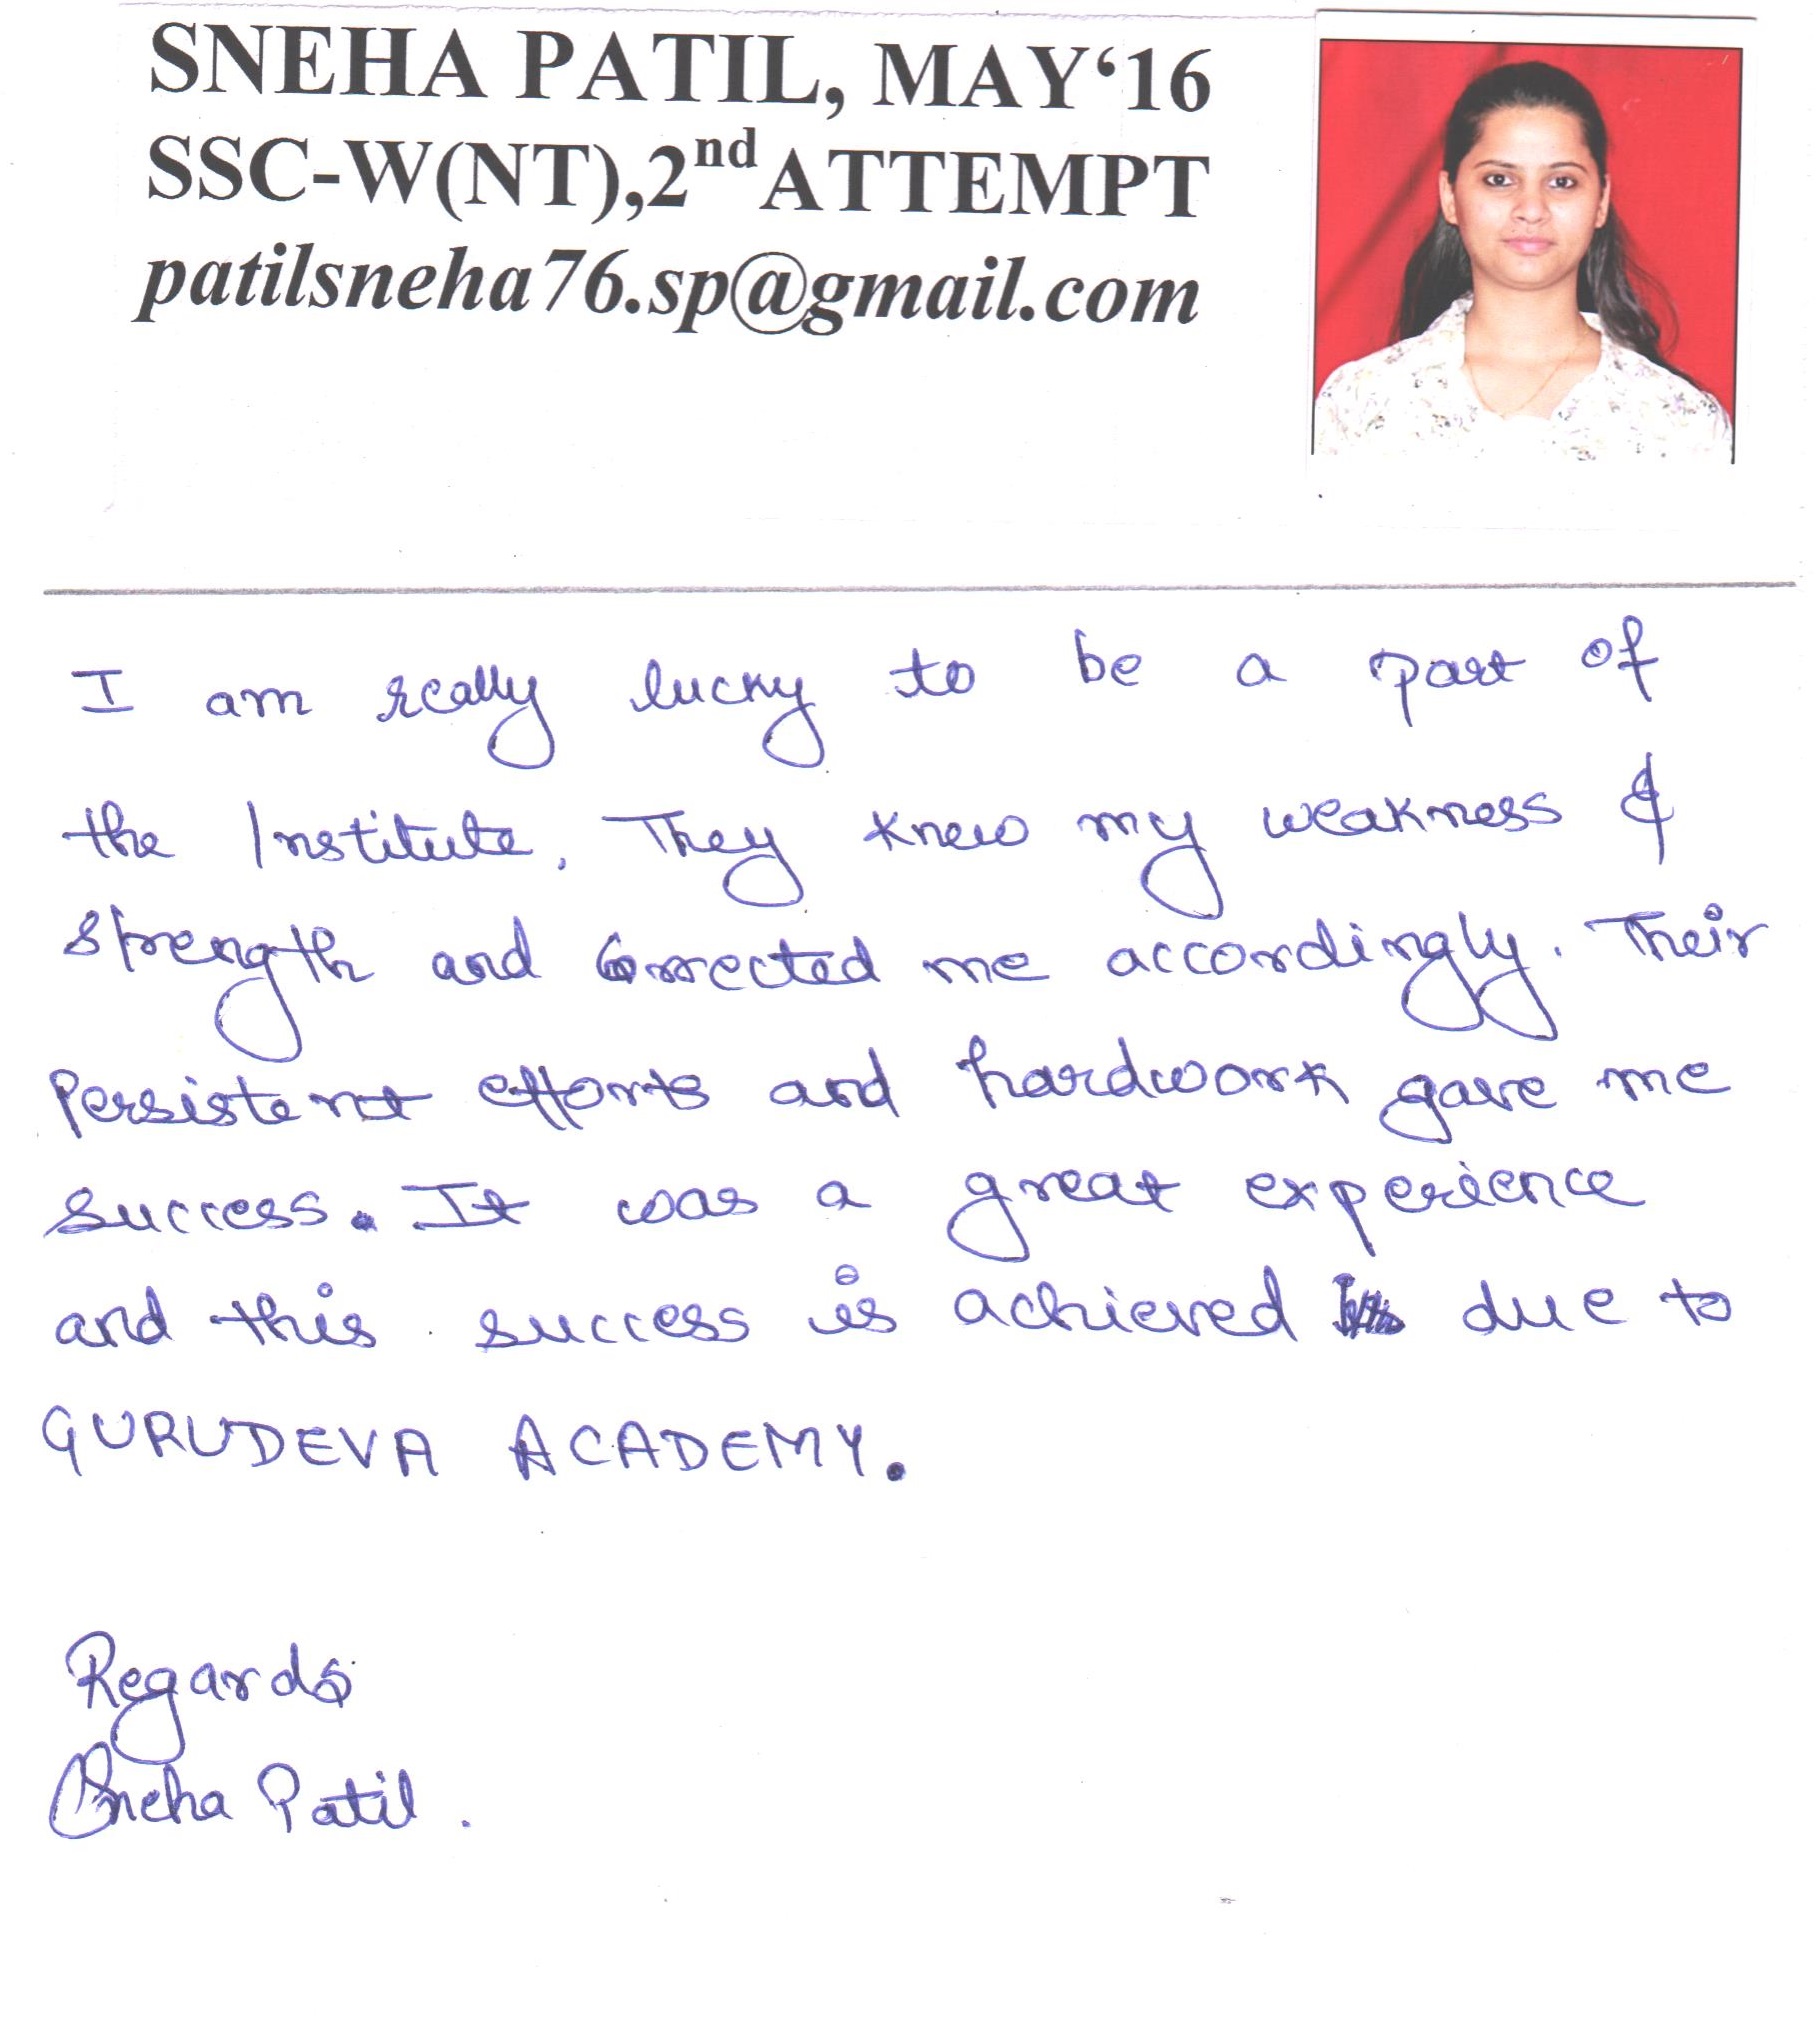 SNEHA PATIL, MAY‘16
SSC-W(NT),2nd ATTEMPT
patilsneha76.sp@gmail.com
I am really lucky to be a part of
the Institute. They knew my weakness &
strength and Corrected me accordingly. Their
Persistent efforts and hardwork gave me
success. It was a great experience
and this success is achieved due to
GURUDEVA ACADEMY.
Regards
Sneha Patil.